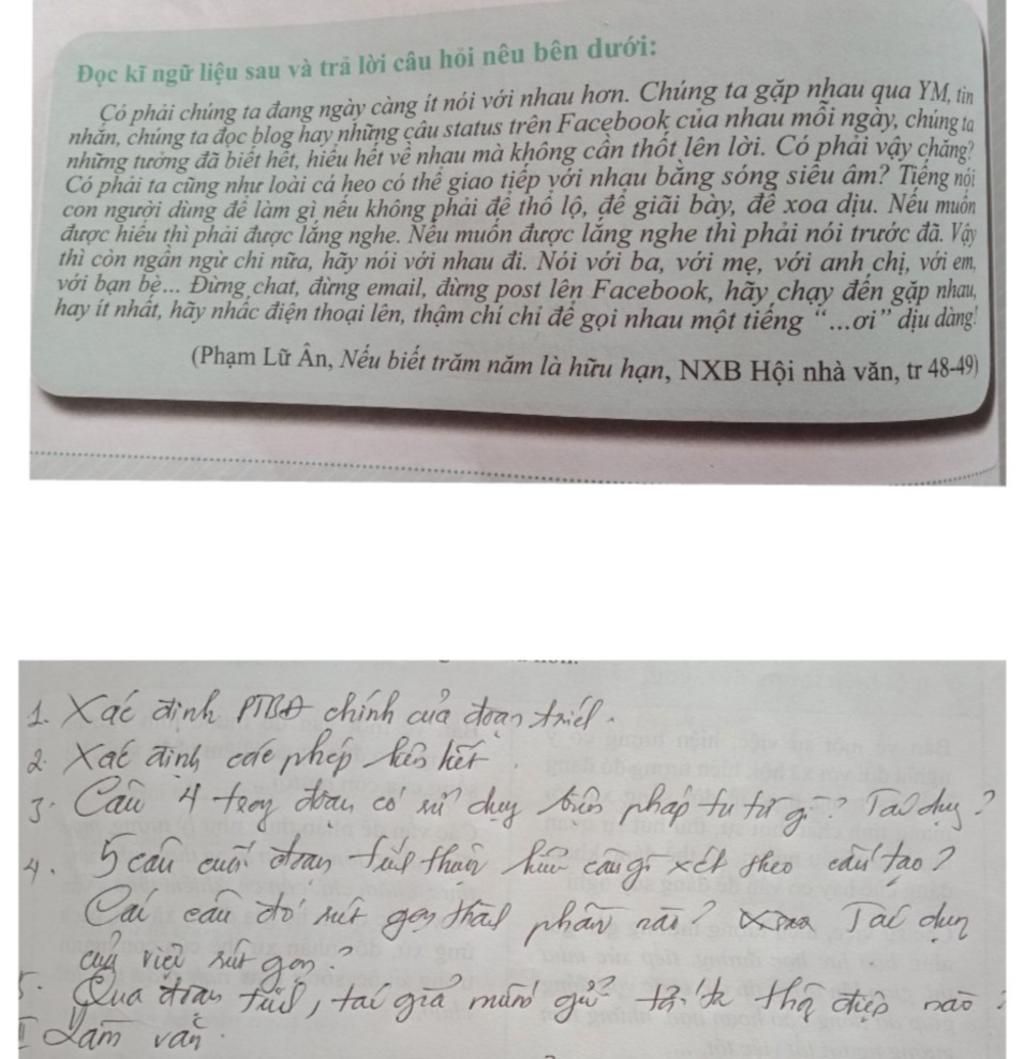 Đọc kĩ ngữ liệu sau và trả lời câu hỏi nêu bên dưới:
Có phải chúng ta đang ngày càng ít nói với nhau hơn. Chúng ta gặp nhau qua YM, tin
nhắn, chúng ta đọc blog hay những câu status trên Facebook của nhau mỗi ngày, chúng ta
những tưởng đã biết hết, hiểu hết về nhau mà không cần thốt lên lời. Có phải vậy chăng?
Có phải ta cũng như loài cá heo có thể giao tiếp với nhau bằng sóng siêu âm? Tiếng nói
con người dùng để làm gì nếu không phải để thổ lộ, để giãi bày, để xoa dịu. Nếu muốn
được hiểu thì phải được lắng nghe. Nếu muốn được lắng nghe thì phải nói trước đã. Vậy
thì còn ngần ngừ chi nữa, hãy nói với nhau đi. Nói với ba, với mẹ, với anh chị, với em,
với bạn bè... Đừng chat, đừng email, đừng post lên Facebook, hãy chạy đến gặp nhau,
hay ít nhất, hãy nhấc điện thoại lên, thậm chí chỉ để gọi nhau một tiếng “...ơi” dịu dàng!
(Phạm Lữ Ân, Nếu biết trăm năm là hữu hạn, NXB Hội nhà văn, tr 48-49)
1. Xác định PTBĐ chính của đoạn trích.
2. Xác định các phép liên kết.
3. Câu 4 trong đoạn có sử dụng biện pháp tu từ gì? Tác dụng?
4. 5 câu cuối đoạn trích thuộc kiểu câu gì xét theo cấu tạo?
Các câu đó rút gọn thành phần nào? Tác dụng
của việc rút gọn?
5. Qua đoạn trích, tác giả muốn gửi thông điệp nào?
II Làm văn.